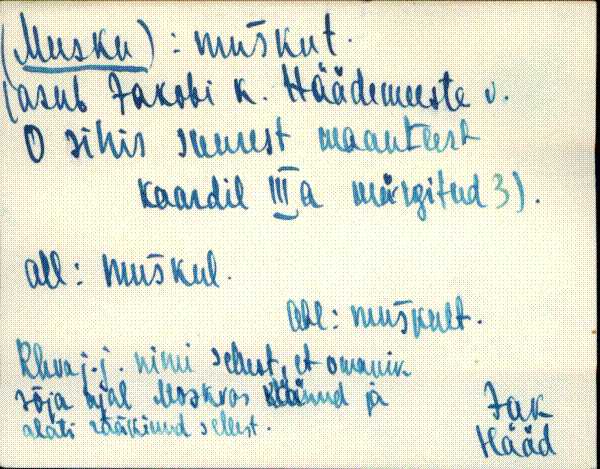 (Musku) : muškut.
(asub Jakobi k. Häädemeeste v.
O sihis suurest maanteest
kaardil III a märgitud 3).
all: muškul.
abl: muškult.
Rhva j.j. nimi sellest, et omanik
sõja ajal Moskvas käinud ja
alati rääkinud sellest.
Jak
Hääd